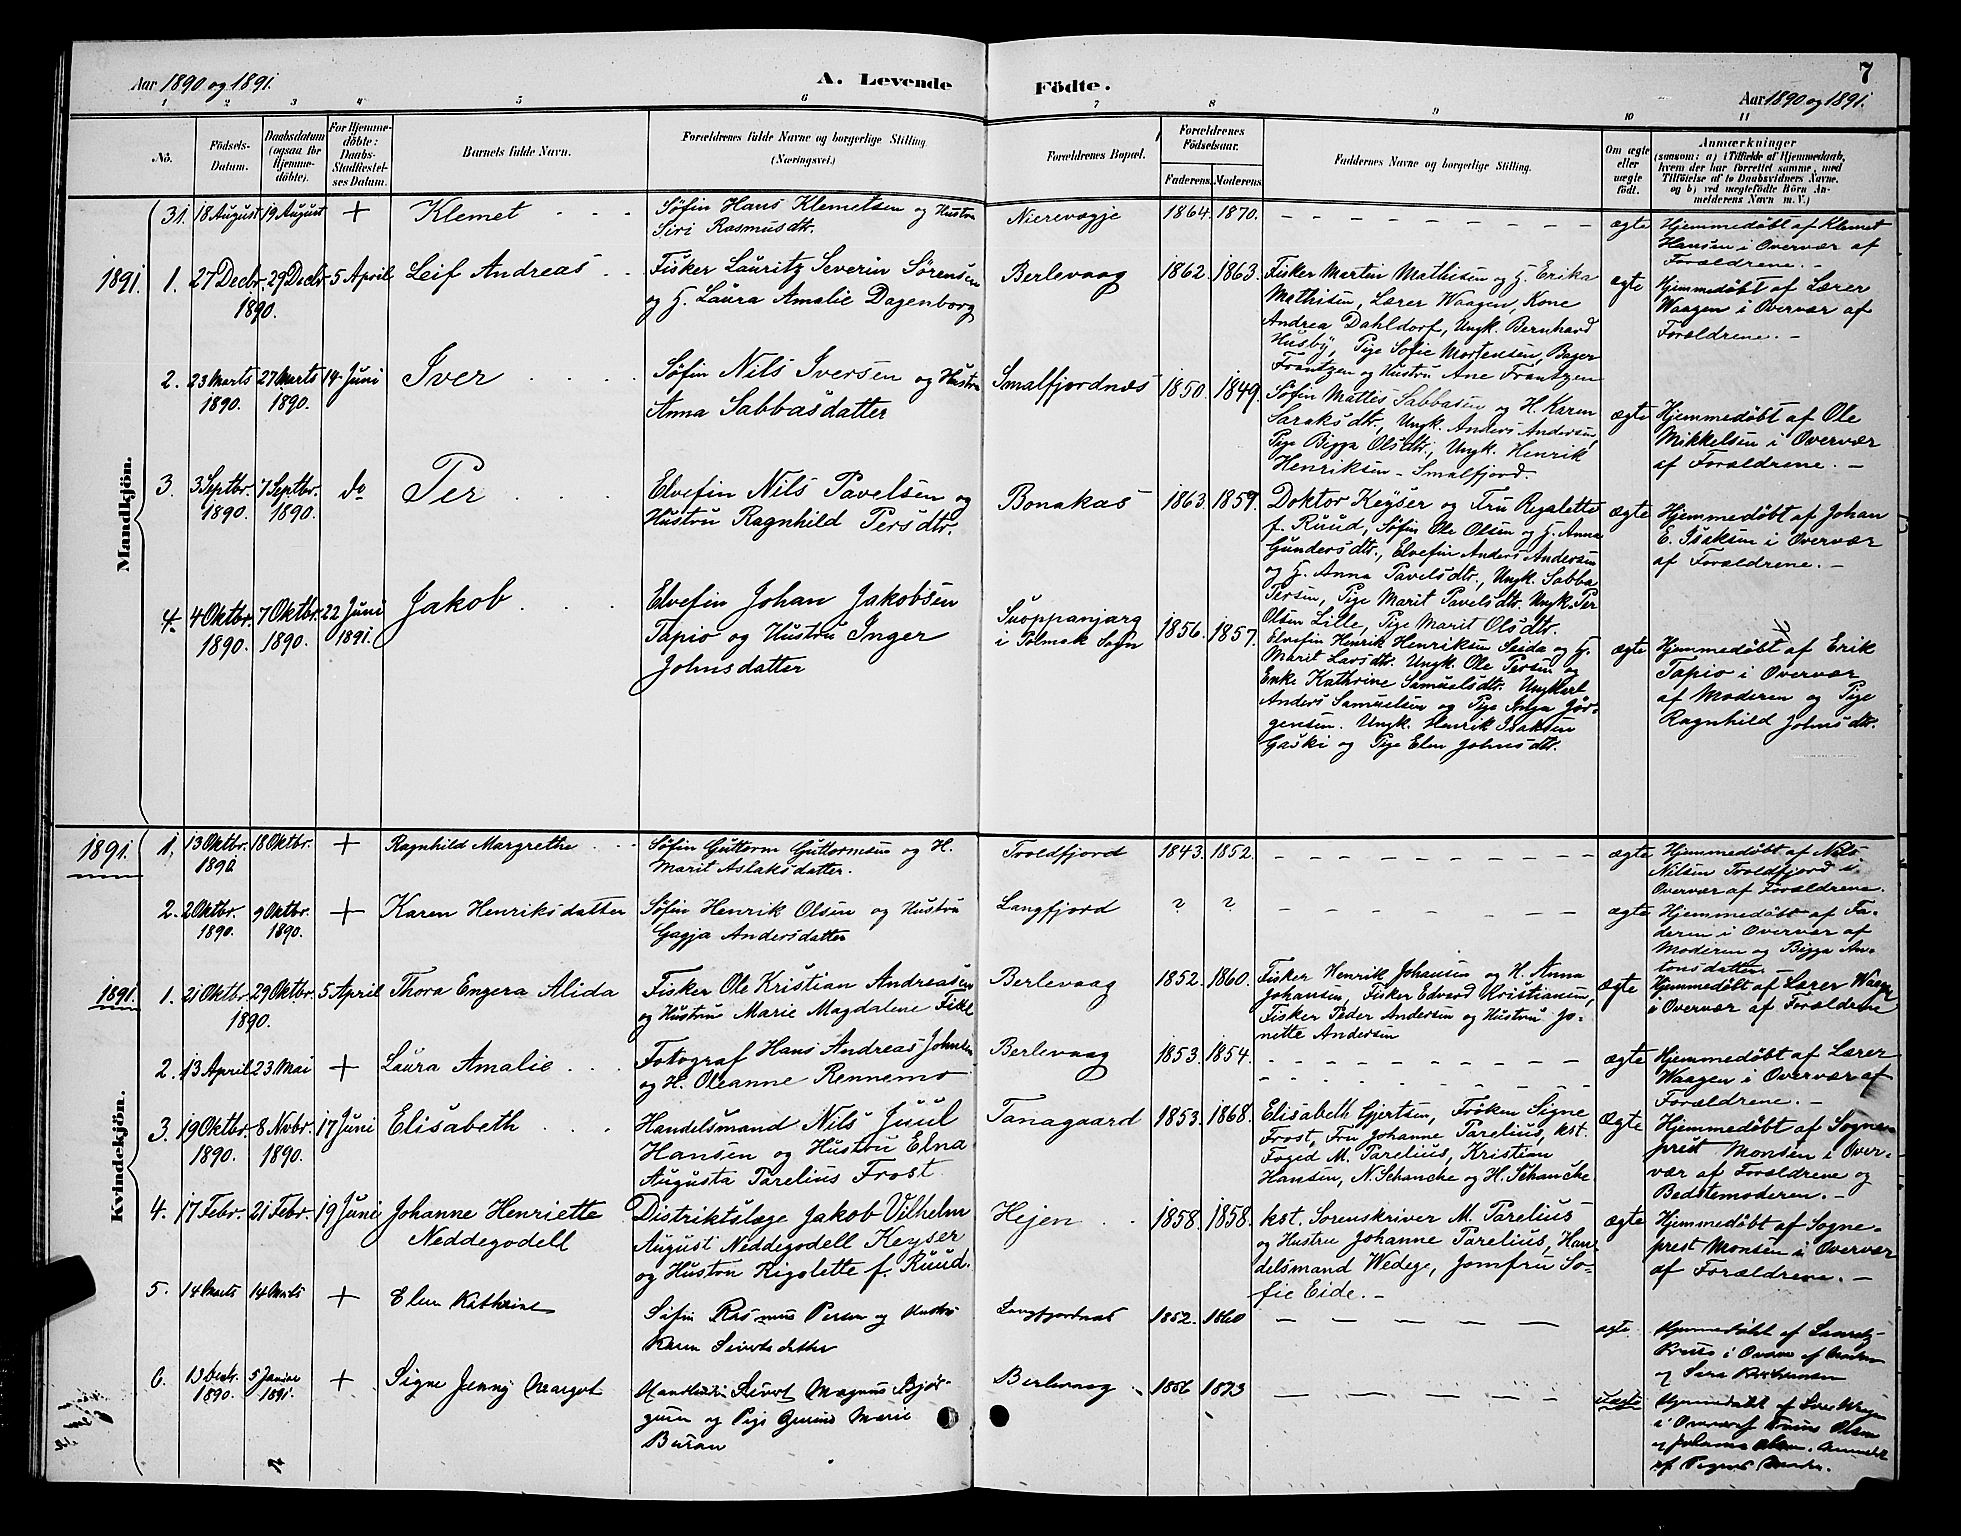 Aar 1890 og 1891.
A. Levende
Födte.
7
Aar 1890 og 1891.
1 2 3 4 5 6 7 8 9 10 11
No.
Födsels-
Datum.
Daabsdatum
(ogsaa for
Hjemme-
döbte).
For Hjemme-
döbte:
Daabs-
Stadfæstel-
ses Datum.
Barnets fulde Navn.
Forældrenes fulde Navne og borgerlige Stilling
(Næringsvei.)
Forældrenes Bopæl.
Forældrenes
Födselsaar.
Faderens. Moderens.
Faddernes Navne og borgerlige Stilling.
Om ægte
eller
uægte
födt.
Anmærkninger
(saasom: a) i Tilfælde af Hjemmedaab,
hvem der har forrettet samme, med
Tilföielse af to Daabsvidners Navne.
og b) ved uægtefödte Börn An-
melderens Navn m. V.)
Mandkjön.
31. 18 August 19 August + Klemet
Søfin Hans Klemetsen og Hustru
Siri Rasmusdtr.
Nierevagje 1864. 1870.
ægte
Hjemmedøbt af Klemet
Hansen i Overvær af
Forældrene. –
1891. 1. 27 Decbr. 29 Decbr. 5 April Leif Andreas
1890.
Fisker Lauritz Severin Sørensen
og H. Laura Amalie Dagenborg
Berlevaag 1862. 1863.
Fisker Martin Mathisen og H. Erika
Mathisen, Lærer Waagen, Kone
Andrea Dahldorf, Ungk. Bernhard
Husby, Pige Sofie Mortensen, Bager
Frantzen og Hustru Ane Frantzen
ægte
Hjemmedøbt af Lærer
Waagen i Overvær af
Forældrene. –
2. 23 Marts 27 Marts 14 Juni Iver
1890. 1890.
Søfin Nils Iversen og Hustru
Anna Sabbasdatter
Smalfjordnæs 1850. 1849.
Søfin Mattis Sabbasen og H. Karen
Saraksdtr., Ungk. Anders Andersen,
Pige Bigga Olsdtr., Ungk. Henrik
Henriksen – Smalfjord.
ægte
Hjemmedøbt af Ole
Mikkelsen i Overvær
af Forældrene. –
3. 3 Septbr. 7 Septbr. do Per
1890. 1890.
Elvefin Nils Pavelsen og
Hustru Ragnhild Persdtr.
Bonakas 1863. 1859.
Doktor Keyser og Fru Rigolette
f. Ruud, Søfin Ole Olsen og H. Anna
Gundersdtr., Elvefin Anders Andersen
og H. Anna Pavelsdtr., Ungk. Sabba
Persen, Pige Marit Pavelsdtr. Ungk. Per
Olsen Lille, Pige Marit Olsdtr.
ægte
Hjemmedøbt af Johan
E. Isaksen i Overvær
af Forældrene. –
4. 4 Oktbr. 7 Oktbr. 22 Juni Jakob
1890. 1890. 1891.
Elvefin Johan Jakobsen
Tapio og Hustru Inger
Johnsdatter
Suoppanjarg
i Polmak Sogn
1856. 1857.
Elvefin Henrik Henriksen Seida og H.
Marit Larsdtr. Ungk. Ole Persen og
Enke Kathrine Samuelsdtr. Ungkarl
Anders Samuelsen og Pige Inga Jør-
gensen. Ungk. Henrik Isaksen
Gaski og Pige Elen Johnsdtr.
ægte
Hjemmedøbt af Erik
Tapio i Overvær
af Moderen og Pige
Ragnhild Johnsdtr.
Kvindekjön.
1891. 1. 13 Oktbr. 18 Oktbr. + Ragnhild Margrethe
1890.
Søfin Guttorm Guttormsen og H.
Marit Aslaksdatter.
Troldfjord 1843. 1852.
ægte
Hjemmedøbt af Nils
Nilsen Troldfjord i
Overvær af Forældrene.
2. 2 Oktbr. 9 Oktbr. + Karen Henriksdatter
1890. 1890.
Søfin Henrik Olsen og Hustru
Gagja Andersdatter
Langfjord ? ?
ægte
Hjemmedøbt af Fa-
deren i Overvær af
Moderen og Bigga An-
tonsdatter. –
1891. 1. 21 Oktbr. 29 Oktbr. 5 April Thora Engera Alida
1890.
Fisker Ole Kristian Andreasen
og Hustru Marie Magdalene Fikl
Berlevaag 1852. 1860.
Fisker Henrik Johansen og H. Anna
Johansen, Fisker Edvard Kristiansen,
Fisker Peder Andersen og Hustru Jo-
nette Andersen
ægte
Hjemmedøbt af Lærer Waagen
i Overvær af Forældrene
2. 13 April 23 Mai + Laura Amalie
Fotograf Hans Andreas Johnsen
og H. Oleanne Rennemo
Berlevaag 1853. 1854.
ægte
Hjemmedøbt af Lærer
Waagen i Overvær af
Forældrene. –
3. 19 Oktbr. 8 Novbr. 17 Juni Elisabeth
1890. 1890.
Handelsmand Nils Juul
Hansen og Hustru Elna
Augusta Parelius Frost
Tanagaard 1853. 1868.
Elisabeth Gjertsen, Frøken Signe
Frost, Fru Johanne Parelius, kst.
Foged M. Parelius, Kristian
Hansen, N. Schanche og H. Schanche
ægte
Hjemmedøbt af Sogne-
prest Monsen i Over-
vær af Forældrene og
Bedstemoderen. –
4. 17 Febr. 21 Febr. 19 Juni Johanne Henriette
Neddegodell
Distriktslæge Jakob Vilhelm
August Neddegodell Keyser
og Hustru Rigolette f. Ruud.
Hejen 1858. 1858.
kst. Sorenskriver M. Parelius
og Hustru Johanne Parelius, Han-
delsmand Wedege, Jomfru So-
fie Eide. –
ægte
Hjemmedøbt af Sogne-
prest Monsen i Overvær
af Forældrene. –
5. 14 Marts 14 Marts + Elen Kathrine
Søfin Rasmus Persen og Hustru
Karen Sivertsdatter
Langfjordnæs 1852. 1860
ægte
Hjemmedøbt af
i Overvær af
og Sara
6. 13 Decbr. 5 Januar + Signe Jenny Margot
1890. 1891.
Sivert Magnus
og Pige Marie
Buran
Berlevaag 1866 1873
Uægte
Hjemmedøbt af
i Overvær af Olsen
og Johanna Olsen. Anmeldt
af Pigens Moder.